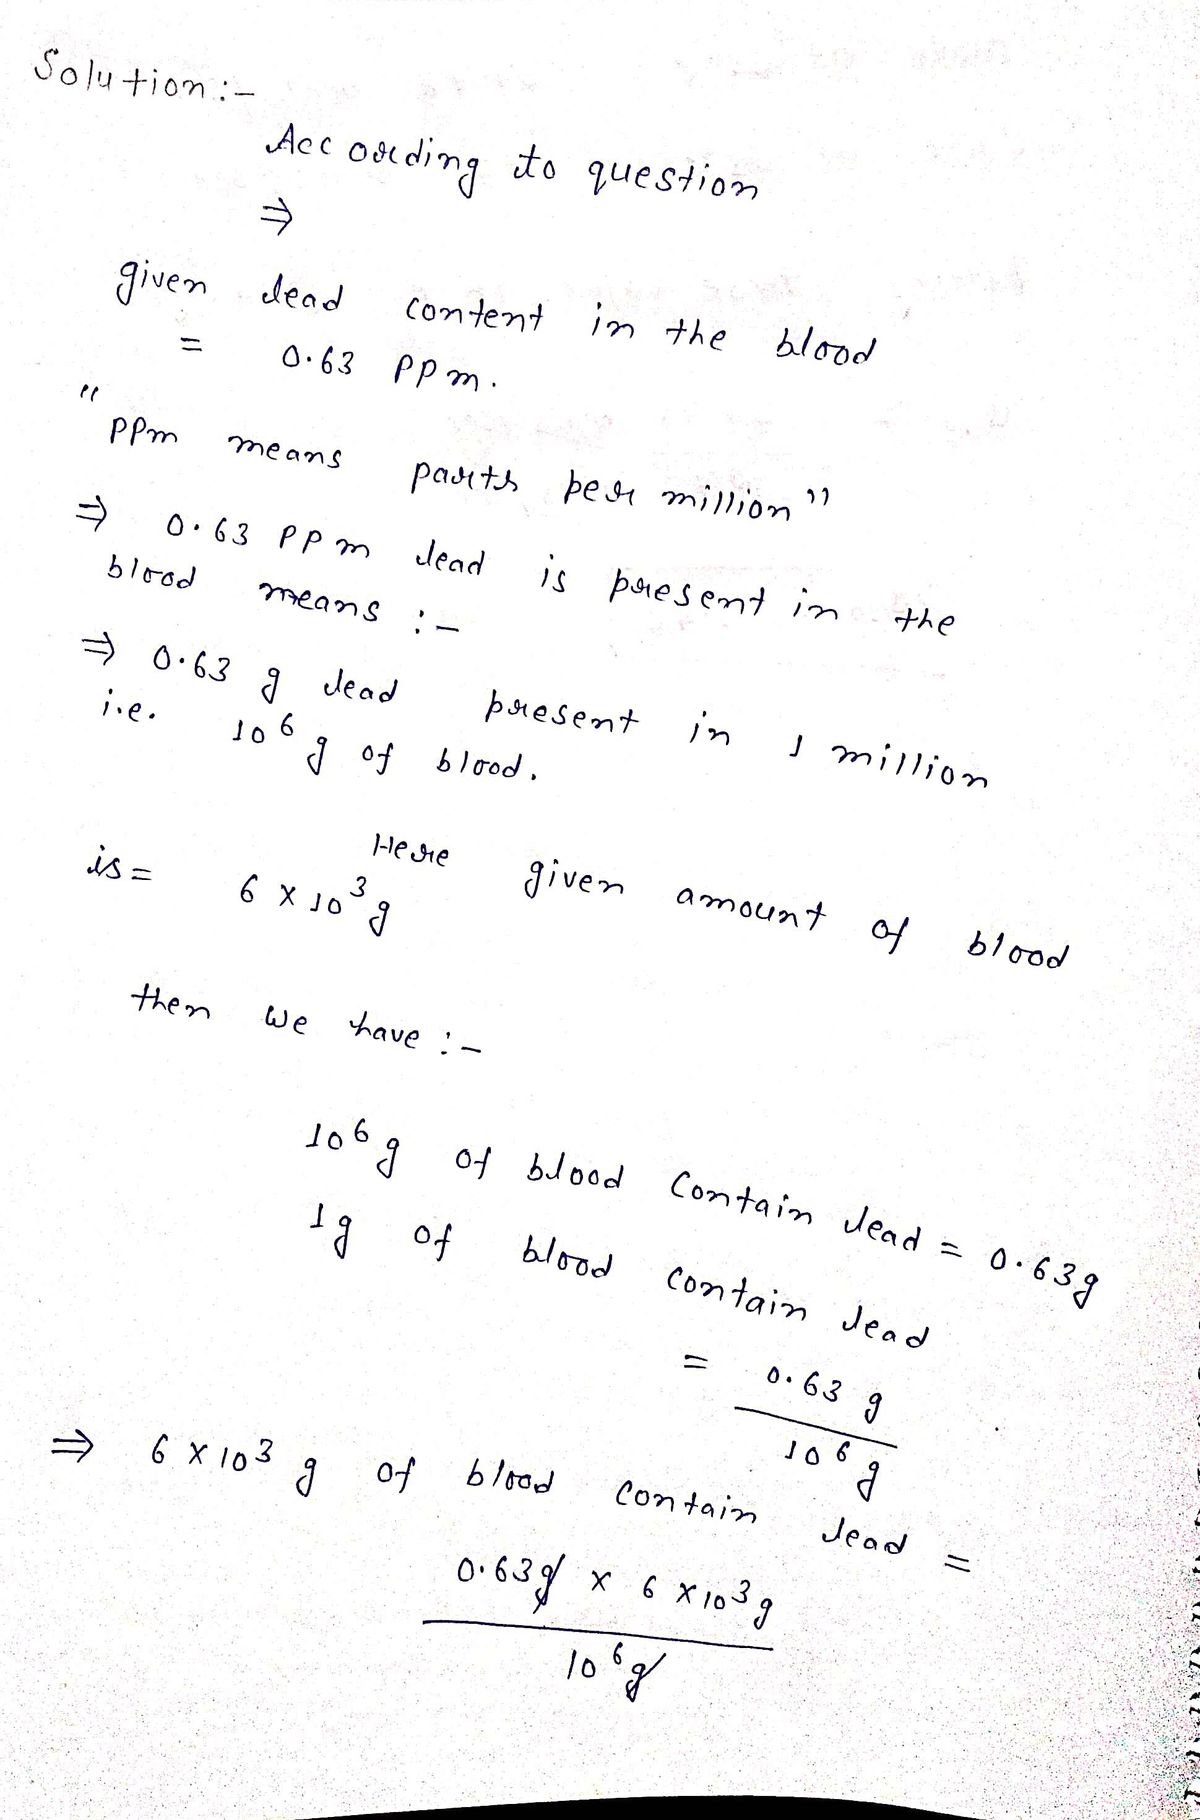 Solution:-
According to question
⇒
given lead content in the blood
= 0.63 PPm.
"PPm means parts per million"
⇒ 0.63 PPm lead is present in the
blood means :-
⇒ 0.63 g lead present in 1 million
i.e. 10⁶ g of blood.
Here given amount of blood
is = 6 × 10³ g
then we have :-
10⁶ g of blood Contain lead = 0.63g
1g of blood contain lead
= 0.63 g / 10⁶ g
⇒ 6 × 10³ g of blood contain lead =
0.63g × 6 × 10³ g
10⁶ g